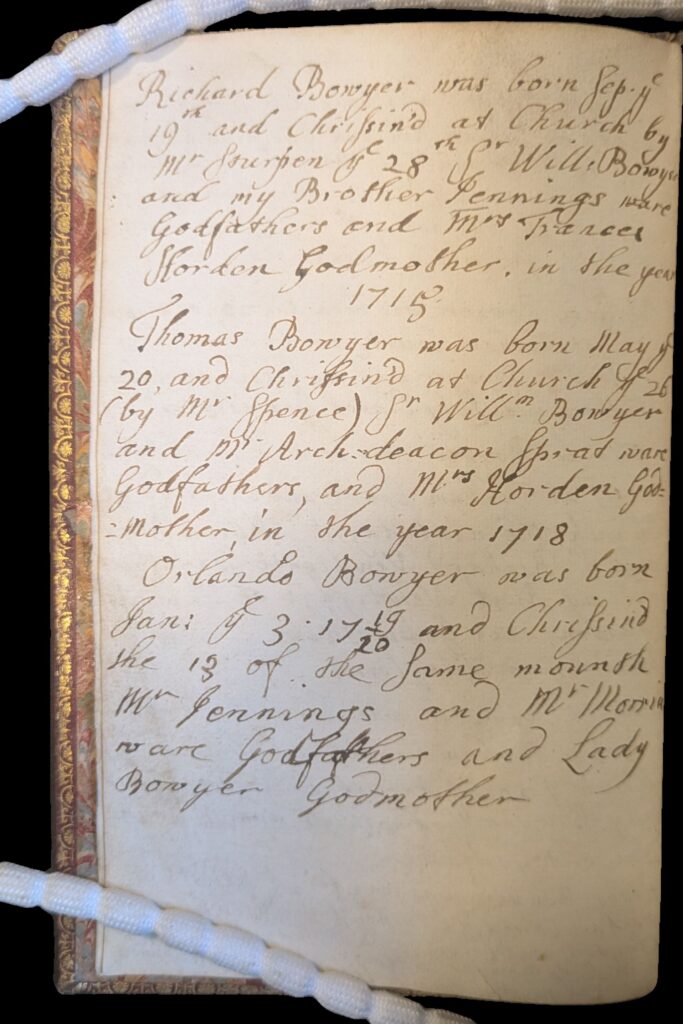 Richard Bowyer was born Sep. ye
19th and Chrissin'd at Church by
Mr ye 28th Sr Will: Bowyer
and my Brother Jennings ware
Godfathers and Mrs Frances
Horden Godmother. in the year
1715
Thomas Bowyer was born May ye
20, and Chrissin'd at Church ye 26
(by Mr Spence) Sr Willm. Bowyer
and Mr Arch-deacon Sprat ware
Godfathers, and Mrs Horden God=
=Mother, in the year 1718
Orlando Bowyer was born
Jan: ye 3: 17 19/20 and Chrissind
the 13 of the same mounth
Mr Jennings and Mr Morris
ware Godfathers and Lady
Bowyer Godmother